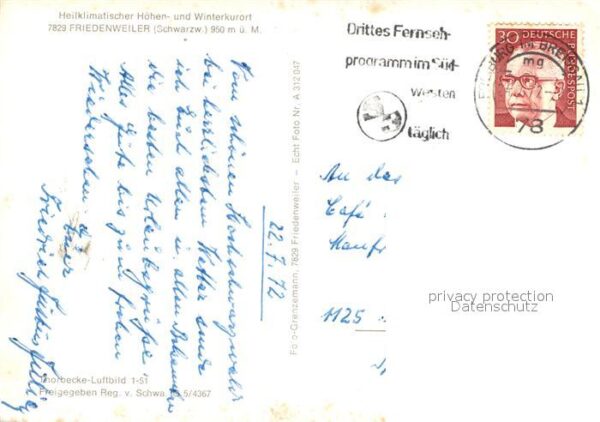 Heilklimatischer Höhen- und Winterkurort
7829 FRIEDENWEILER (Schwarzw.) 950 m ü. M.
Vom schönen Hochschwarzwald
bei herrlichstem Wetter sende
ich Euch allen u. allen Bekannten
die besten Urlaubsgrüße.
Alles Gute bis zum frohen
Wiedersehen
Euer
Friedrich
22.7.72
Thorbecke-Luftbild 1-51
Freigegeben Reg. v. Schwa. 5/4367
Foto-Grenzemann, 7829 Friedenweiler – Echt Foto Nr. A 312 047
Drittes Fernseh-
programm im Süd-
Westen
täglich
30 DEUTSCHE
BUNDESPOST
FREIBURG IM BREISGAU 1
mg
78
An das
Café
1125
privacy protection
Datenschutz